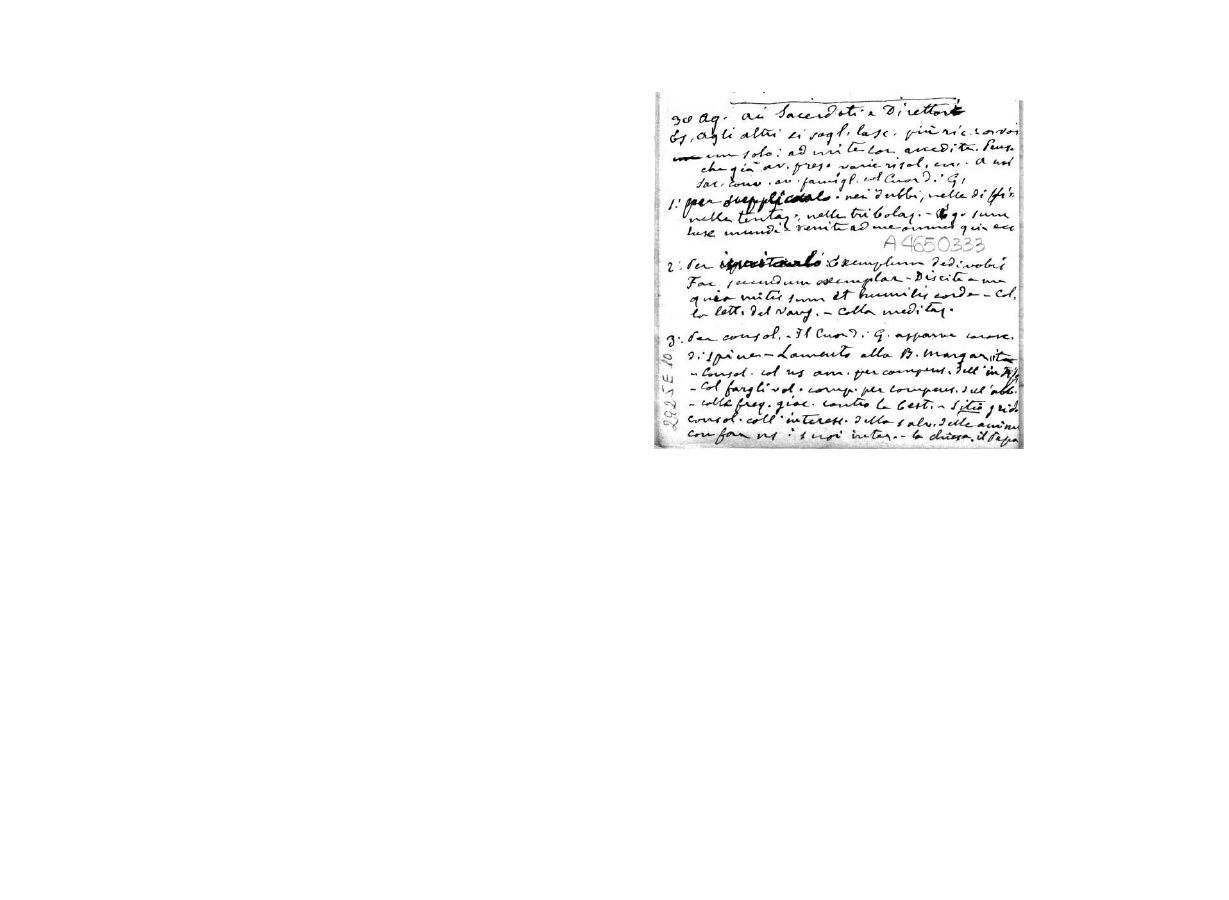 30 Ag. Ai Sacerdoti e Direttori
Es. Agli altri si sogl. lasc. più ric. con voi
un solo: ad mite cor accedite. Pens.
che già av. preso varie risol, ecc. A voi
Sac. conv. av. famigl. col Cuor di G.
1: per supplicarlo: nei dubbi, nelle diffic.
nelle tentaz., nelle tribolaz. - Ego sum
lux mundi - venite ad me omnes quia ecc
A4650333
2: Per Exemplum dedi vobis
Fac secundum exemplar - Discite a me
quia mitis sum et humilis corde - Col.
la lett. del Vang. - Colla meditaz.
3: Per consol. - Il Cuor di G. apparve coron.
di spine - Lamento alla B. Margarita
- Consol. col ns am. per compens. dell'
- Col fargli vol. comp. per compens. dell'abb.
- colle freq. giac. contro le best. - Sitio grid
consol. coll'interess. della salv. delle anime
con far ns i suoi inter. - la chiesa, il Papa
2925E10